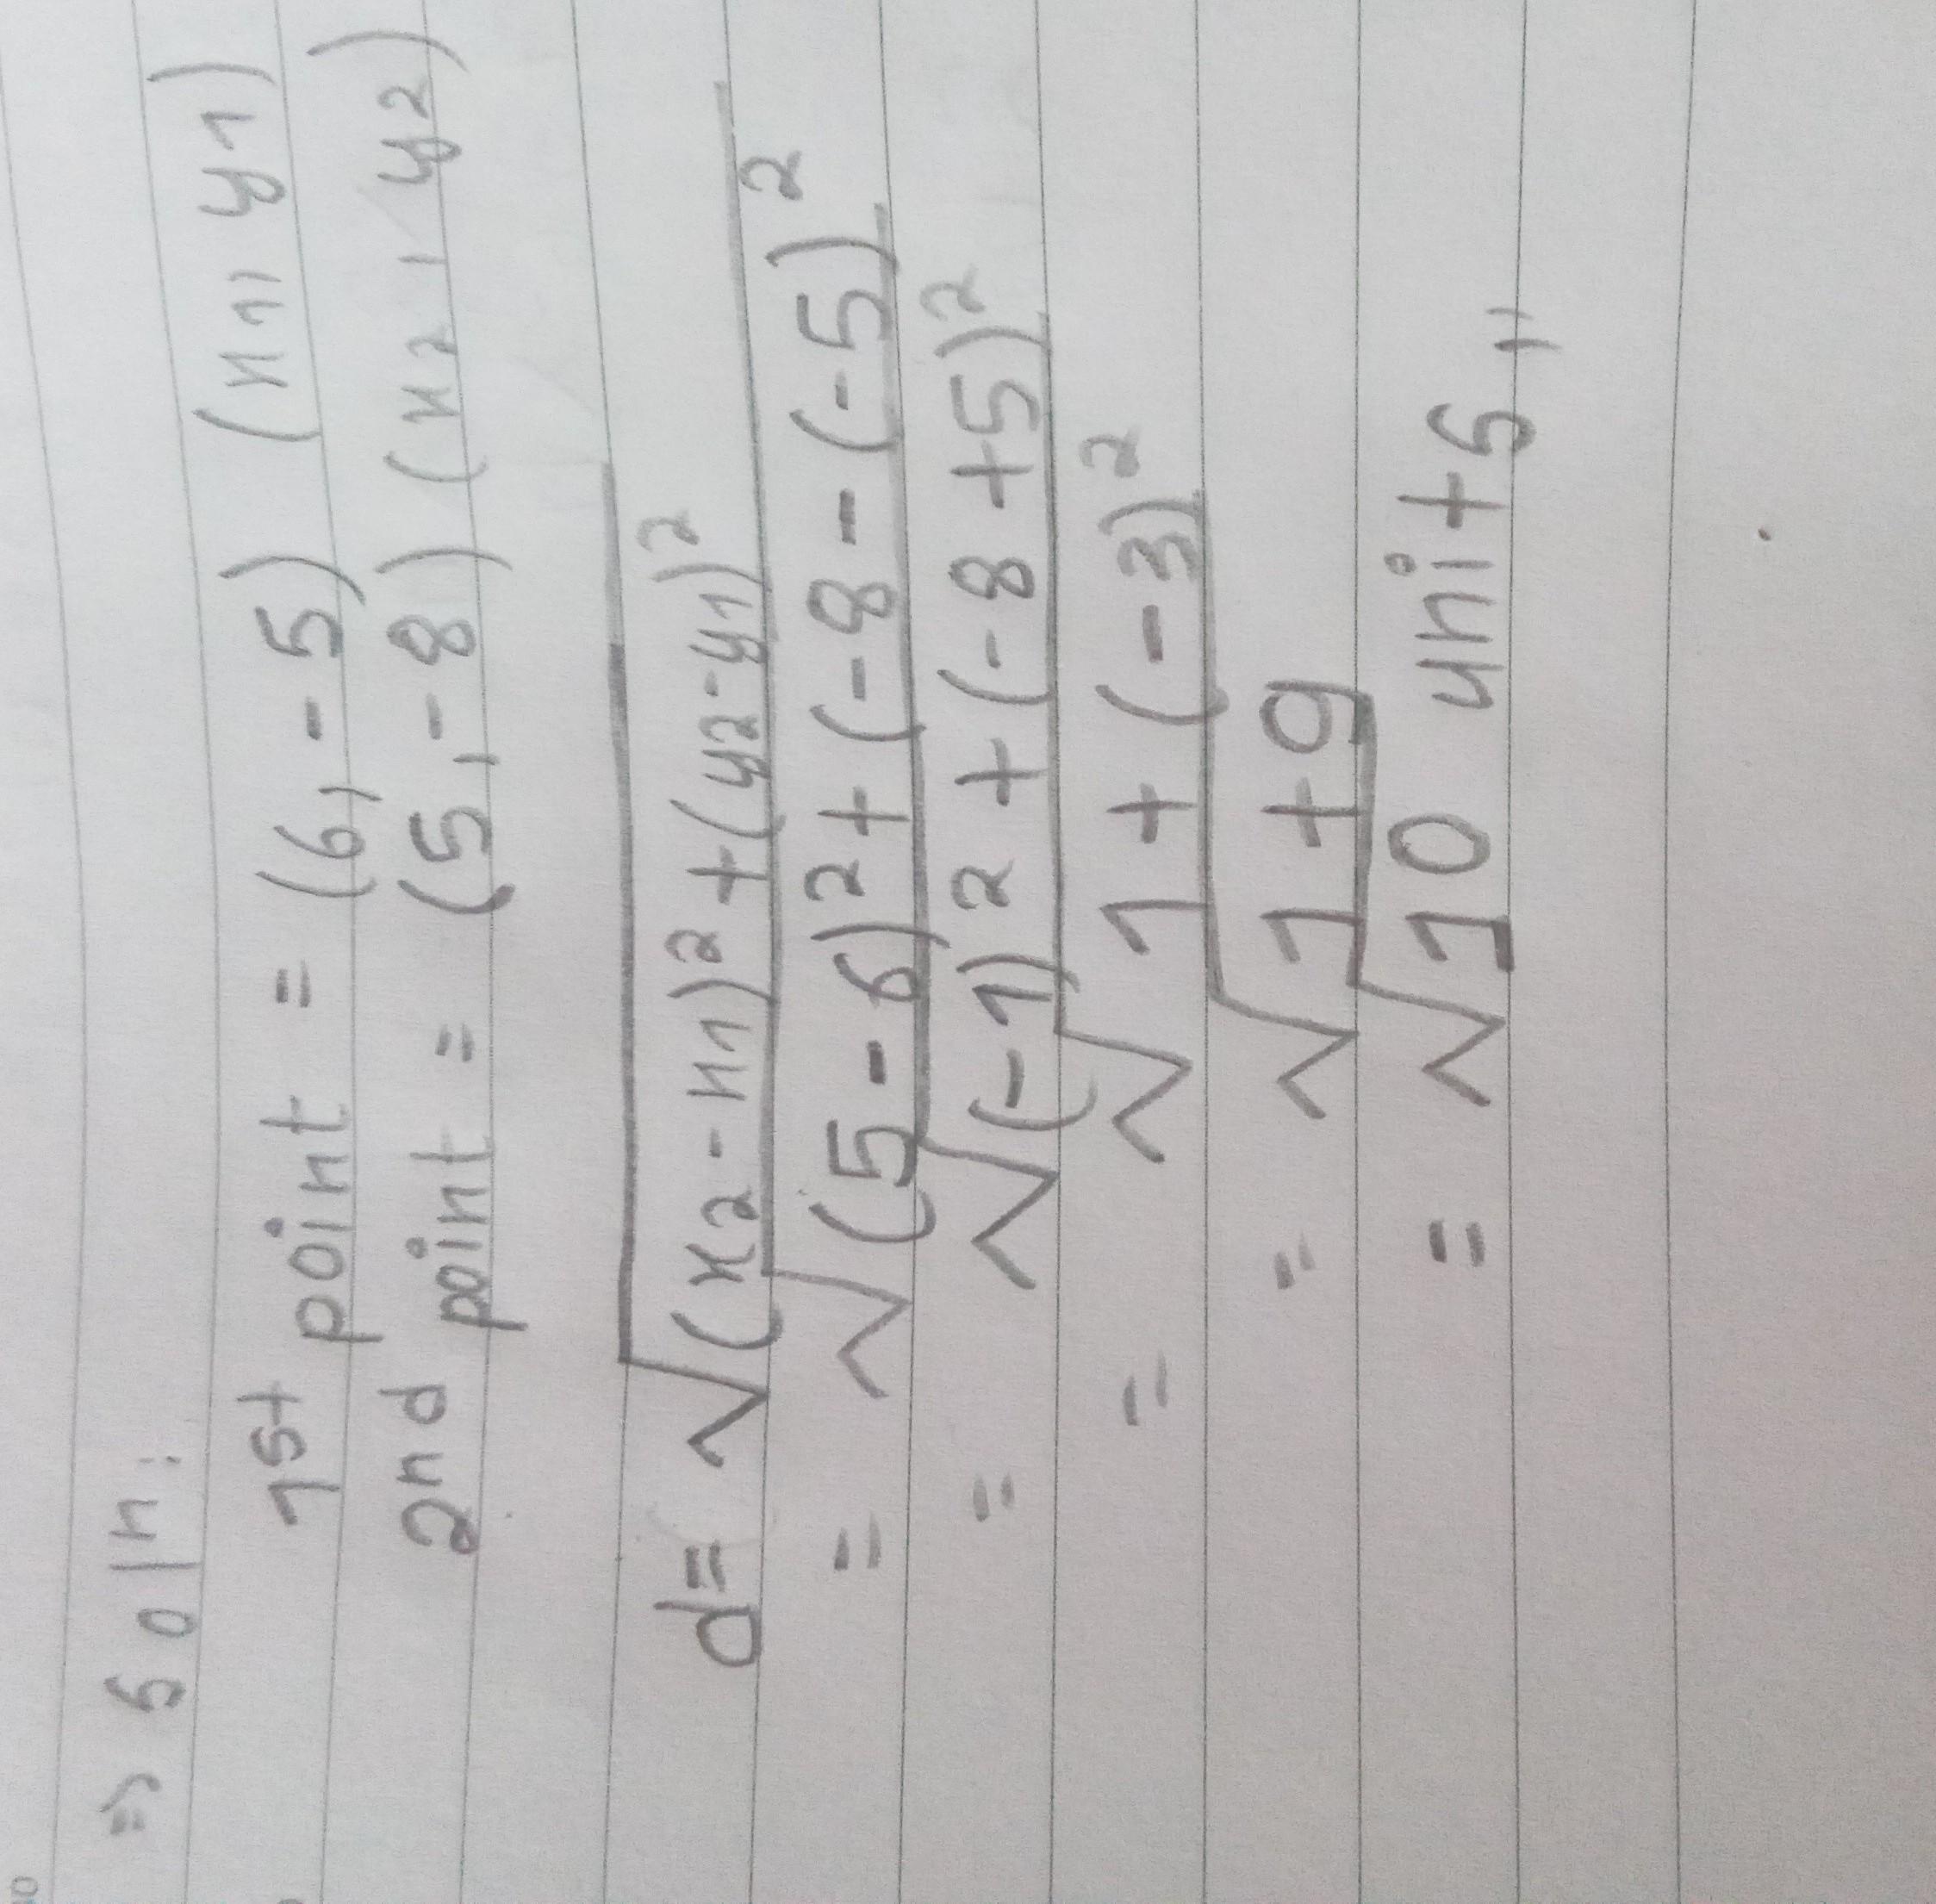 => soln:
1st point = (6, -5) (x1, y1)
2nd point = (5, -8) (x2, y2)
d= √(x2-x1)²+(y2-y1)²
= √(5-6)²+(-8-(-5)²
= √(-1)²+(-8+5)²
= √1+(-3)²
= √1+9
= √10 units,,